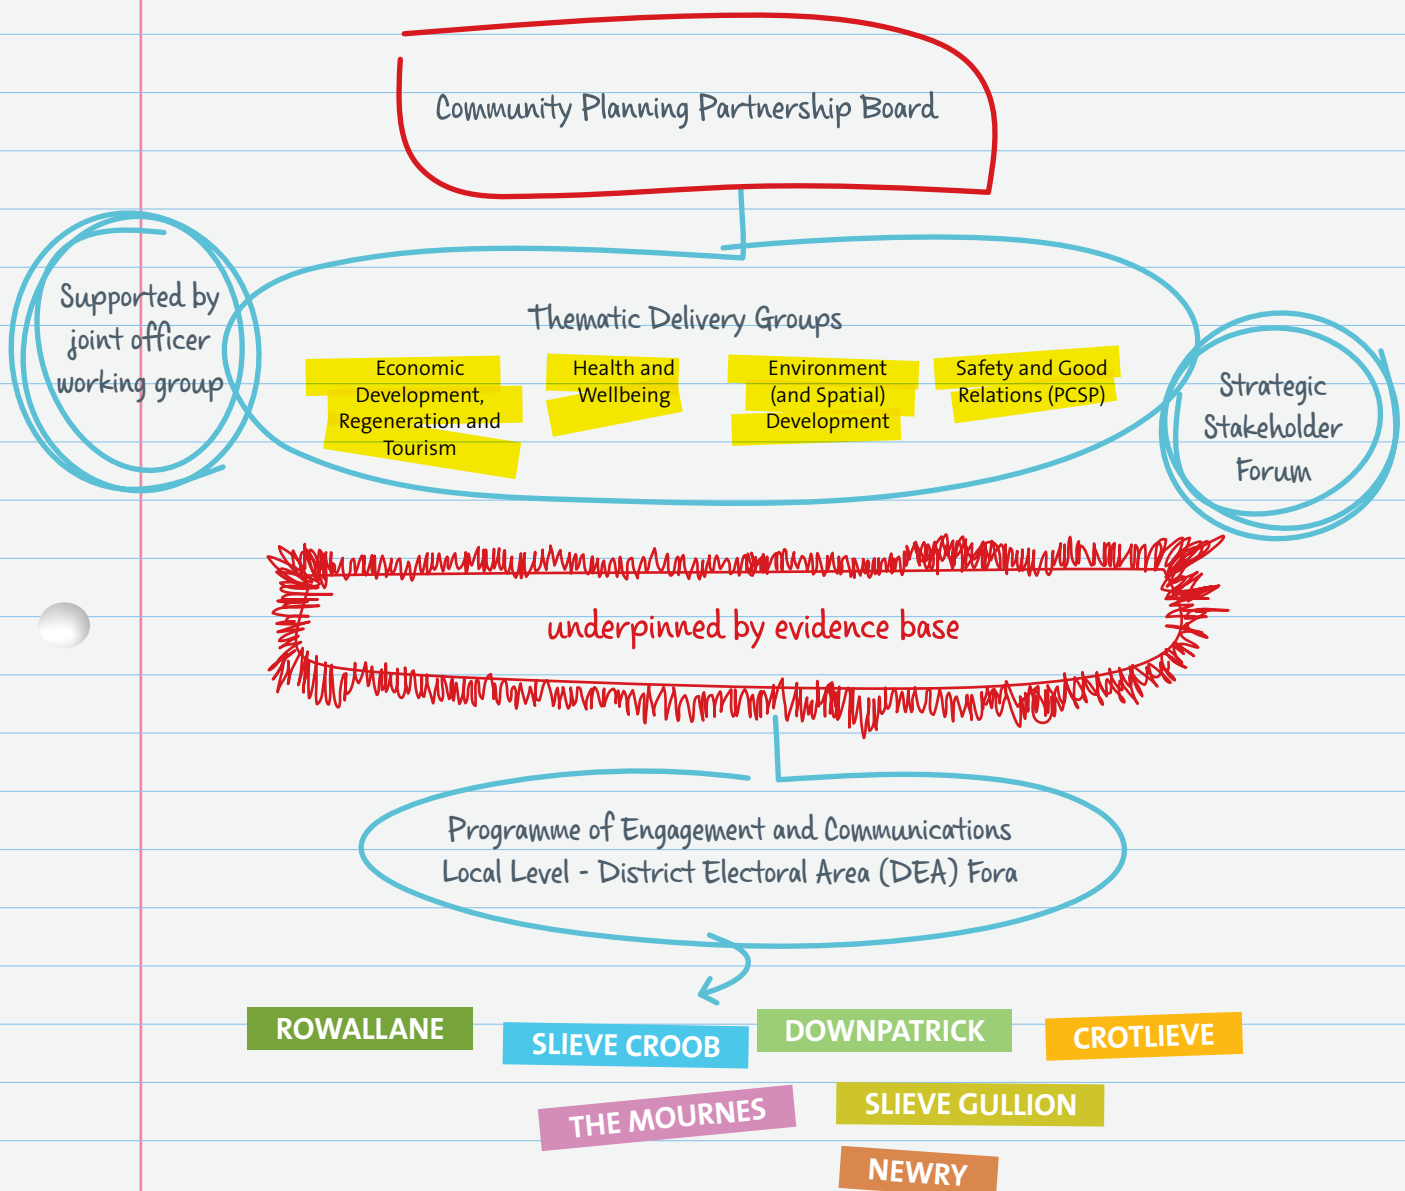 Community Planning Partnership Board
Supported by
joint officer
working group
Thematic Delivery Groups
Economic
Development,
Regeneration and
Tourism
Health and
Wellbeing
Environment
(and Spatial)
Development
Safety and Good
Relations (PCSP)
Strategic
Stakeholder
Forum
underpinned by evidence base
Programme of Engagement and Communications
Local Level - District Electoral Area (DEA) Fora
ROWALLANE
SLIEVE CROOB
DOWNPATRICK
CROTLIEVE
THE MOURNES
SLIEVE GULLION
NEWRY